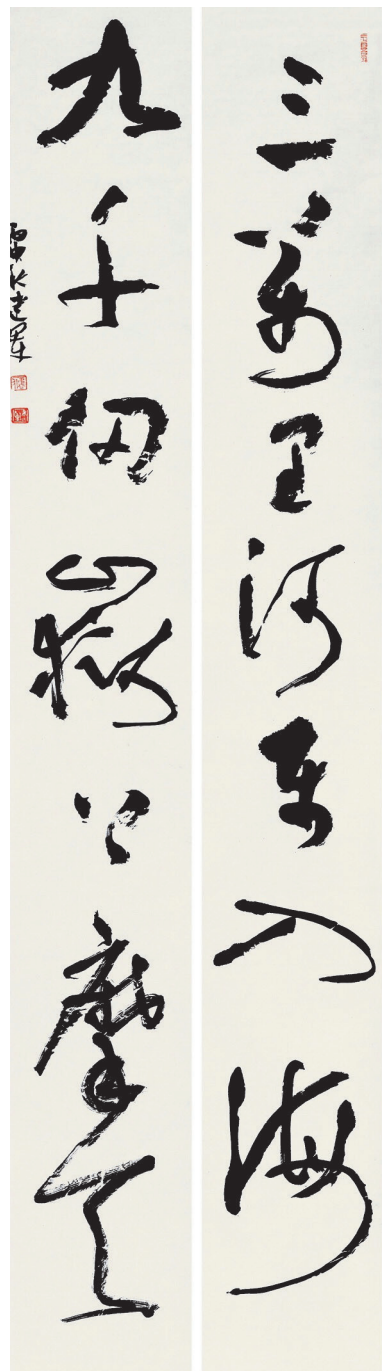 三萬里河東入海
九千仞嶽上摩天